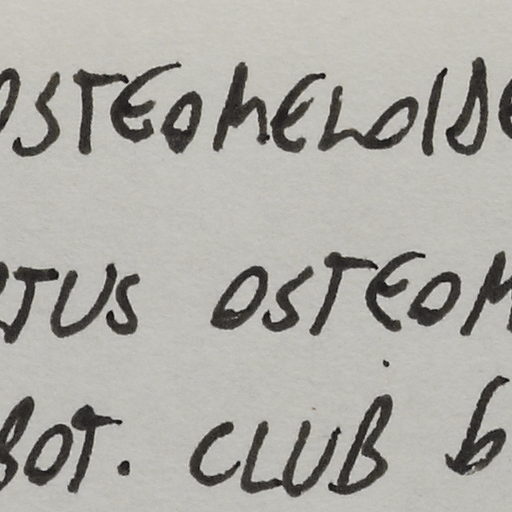 OSTEOMELOIDE
RTUS OSTEOM
BOT. CLUB 6